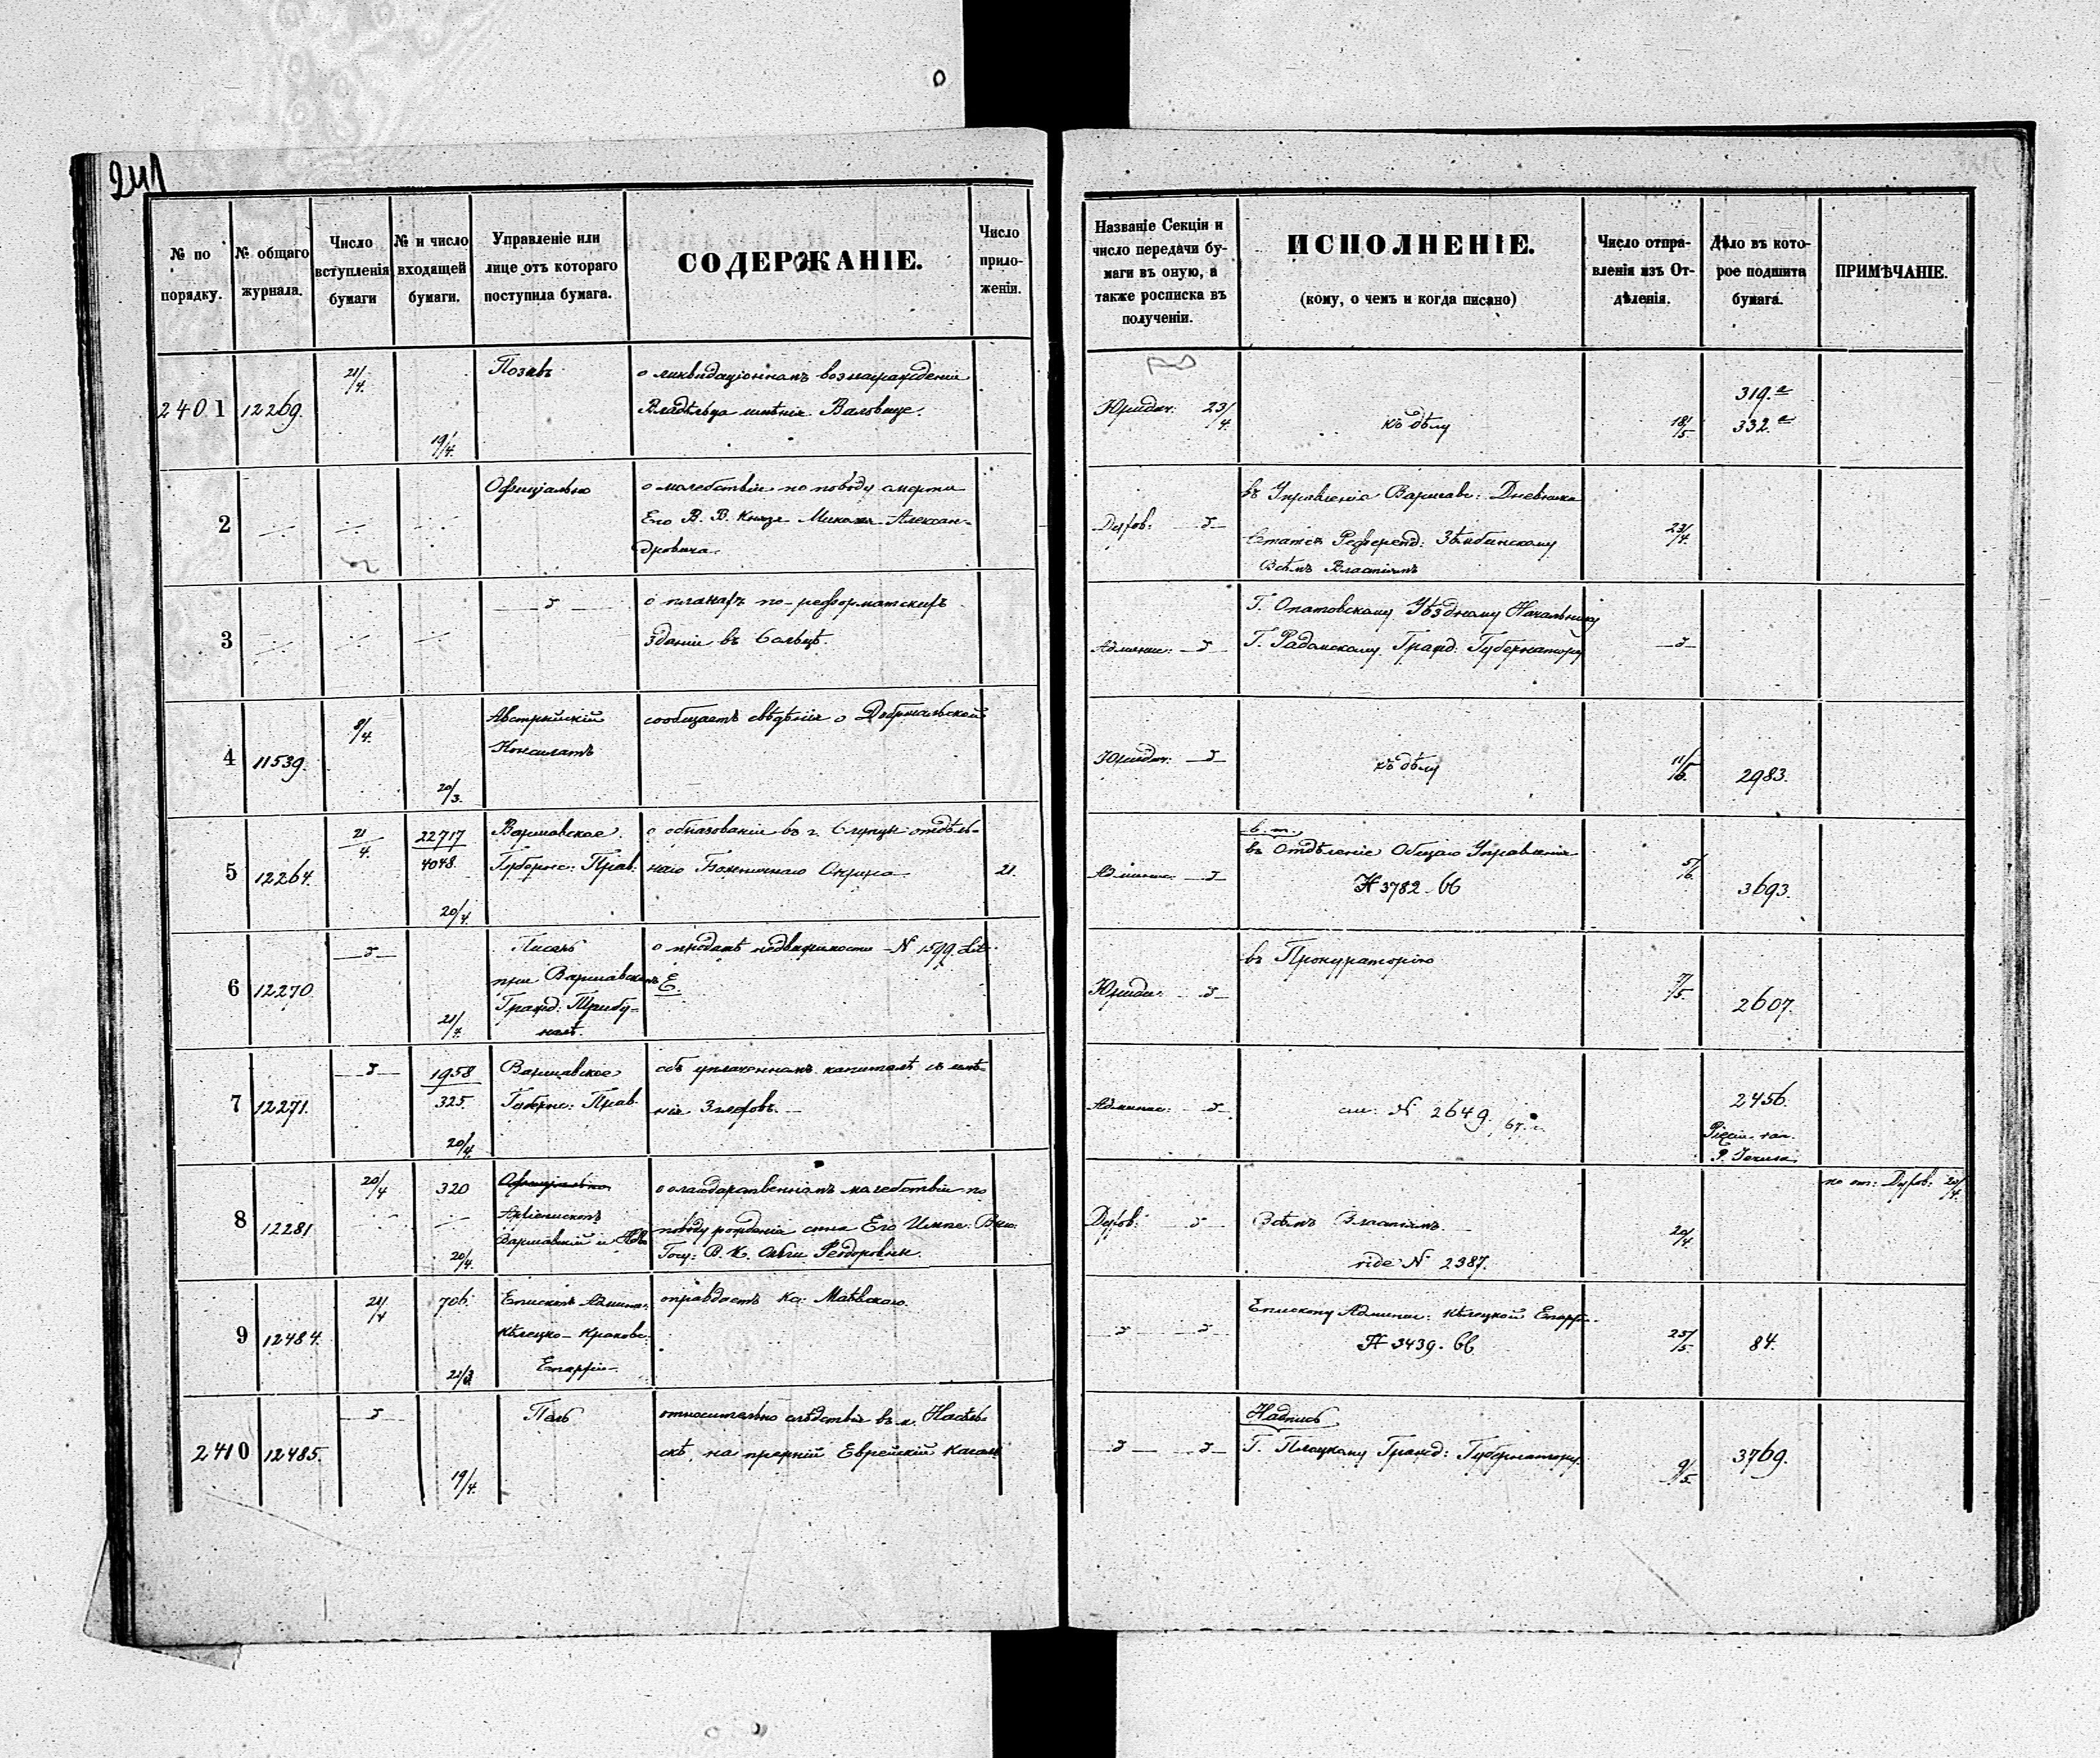 241
№ по порядку.
№ общаго журнала.
Число вступленія бумаги
№ и число входящей бумаги.
Управленіе или лице отъ котораго поступила бумага.
СОДЕРЖАНІЕ.
Число приложеніи.
Названіе Секціи и число передачи бумаги въ оную, а также росписка въ полученіи.
ИСПОЛНЕНІЕ.
(кому, о чемъ и когда писано)
Число отправленія изъ Отдѣленія.
Дѣло въ которое подшита бумага.
ПРИМѢЧАНІЕ.
2401
12269.
21/4.
19/4.
о ликвидаціонномъ вознагражденіи
Владѣльца имѣнія
Юридич: 23/4.
къ дѣлу
18/5
319.
332.
2
Офиціально
о молебствіи по поводу смерти
Его В. В. Князя Александровича.
Духов:
въ Управленіе Варшавс: Дневника
Статсъ Референд:
Всѣмъ Властямъ
23/4.
3
о планахъ по-реформатскихъ
зданіи въ
Админис:
Г. Опатовскому Уѣздному Начальнику
Г. Радомскому Гражд: Губернатору
4
11539.
8/4.
20/3.
Австрійскій
Консулатъ
сообщаетъ свѣдѣнія о
Юридич:
къ дѣлу
11/6.
2983.
5
12264.
21/4.
22717
4048.
20/4.
Варшавское
Губернс: Прав:
о образованіи въ г. Слупцы отдѣль-
наго Божничнаго Округа
21.
Админис:
въ Отдѣленіе Общаго Управленія
№ 3782. 66
5/6.
3693.
6
12270
21/4.
Писарь
при Варшавскомъ
Гражд: Трибу=
налѣ.
о продажѣ недвижимости N 1599. Lit.
E.
Юриди:
въ Прокураторію
7/5.
2607.
7
12271.
1958
325.
20/4.
Варшавское
Губернс: Прав.
объ уплаченномъ капиталѣ съ имѣ-
нія
Админис:
см: N 2649.
2456.
8
12281
20/4
320
20/4.
Офиціально
Архіепископъ
Варшавскій и
о благодарственномъ молебствіи по
поводу рожденія сына Его Импе: Высо:
Госу: В. К. Ольги Феодоровны.
Духов:
Всѣмъ Властямъ.
vide N 2387.
20/4.
по от: Духов: 20/4.
9
12484.
21/4
706.
21/3
Епископъ Админи:
Кѣлецко-Краковс:
Епархіи
оправдаетъ Кс:
Епископу Админис: Кѣлецкой Епарх:
№ 3439. 66
25/5.
84.
2410
12485.
19/4.
относительно слѣдствія въ м. Насѣль-
скѣ, на прежній Еврейскій Кагалъ
Надпись
Г. Плоцкому Гражд: Губернатору.
9/5.
3769.